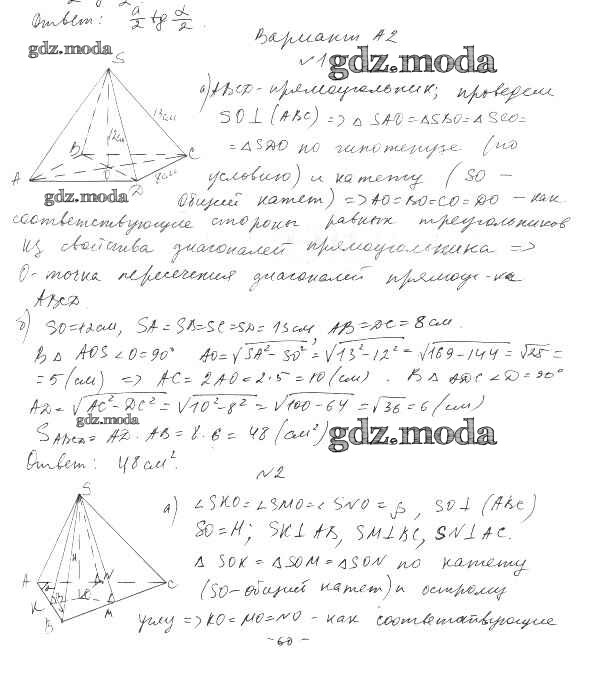 Ответ: a/2 tg α/2
gdz.moda
Вариант А2
№1
gdz.moda
а) ABCD - прямоугольник; проведем
SO⊥(ABC) => △SAO=△SBO=△SCO=
=△SDO по гипотенузе (по
условию) и катету (SO -
общий катет) => AO=BO=CO=DO - как
соответствующие стороны равных треугольников
Из свойства диагоналей прямоугольника =>
O - точка пересечения диагоналей прямоуг-ка
ABCD.
S
13см
12см
B
C
O
A
D
8см
gdz.moda
б) SO=12см, SA=SB=SC=SD=13см, AB=DC=8см.
В △ AOS ∠O=90° AO=√SA²-SO²=√13²-12²=√169-144=√25=
=5(см) => AC=2AO=2·5=10(см). В △ ADC ∠D=90°
AD=√AC²-DC²=√10²-8²=√100-64=√36=6(см)
gdz.moda
S ABCD = AD·AB=8·6=48(см²)
gdz.moda
Ответ: 48см².
№2
а) ∠SKO=∠SMO=∠SNO=β, SO⊥(ABC)
SO=H; SK⊥AB, SM⊥BC, SN⊥AC.
△SOK=△SOM=△SON по катету
(SO-общий катет) и острому
углу => KO=MO=NO - как соответствующие
S
H
A
N
C
K
O
M
B
- 60 -